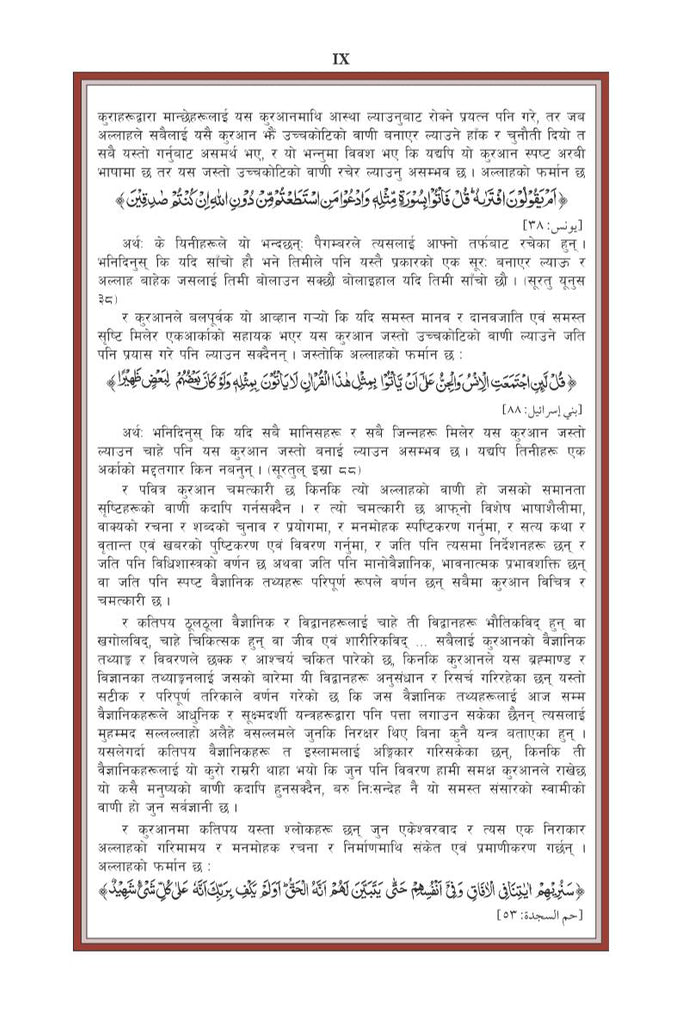 IX
कुराहरूद्वारा मान्छेहरूलाई यस कुरआनमाथि आस्था ल्याउनुबाट रोक्ने प्रयत्न पनि गरे, तर जब
अल्लाहले सबैलाई यसै कुरआन भैंm उच्चकोटिको वाणी बनाएर ल्याउने हांक र चुनौती दियो त
सबै यस्तो गर्नुबाट असमर्थ भए, र यो भन्नुमा विवश भए कि यद्यपि यो कुरआन स्पष्ट अरवी
भाषामा छ तर यस जस्तो उच्चकोटिको वाणी रचेर ल्याउनु असम्भव छ । अल्लाहको फर्मान छ
﴿اَمْ يَقُوْلُوْنَ افْتَرٰىهُ ۗ قُلْ فَاْتُوْا بِسُوْرَةٍ مِّثْلِهٖ وَادْعُوْا مَنِ اسْتَطَعْتُمْ مِّنْ دُوْنِ اللّٰهِ اِنْ كُنْتُمْ صٰدِقِيْنَ﴾
[يونس: ٣٨]
अर्थ: के यिनीहरूले यो भन्दछन्: पैगम्बरले त्यसलाई आफ्नो तर्फबाट रचेका हुन् ।
भनिदिनुस् कि यदि साँचो हौ भने तिमीले पनि यस्तै प्रकारको एक सूर: बनाएर ल्याऊ र
अल्लाह बाहेक जसलाई तिमी बोलाउन सक्छौ बोलाइहाल यदि तिमी साँचो छौ । (सूरतु यूनुस
३८)
र कुरआनले बलपूर्वक यो आव्हान गऱ्यो कि यदि समस्त मानव र दानवजाति एवं समस्त
सृष्टि मिलेर एकआर्काको सहायक भएर यस कुरआन जस्तो उच्चकोटिको वाणी ल्याउने जति
पनि प्रयास गरे पनि ल्याउन सक्दैनन् । जस्तोकि अल्लाहको फर्मान छ :
﴿قُلْ لَّىِٕنِ اجْتَمَعَتِ الْاِنْسُ وَالْجِنُّ عَلٰٓى اَنْ يَّاْتُوْا بِمِثْلِ هٰذَا الْقُرْاٰنِ لَا يَاْتُوْنَ بِمِثْلِهٖ وَلَوْ كَانَ بَعْضُهُمْ لِبَعْضٍ ظَهِيْرًا﴾
[بني إسرائيل: ٨٨]
अर्थ: भनिदिनुस् कि यदि सबै मानिसहरू र सबै जिन्नहरू मिलेर यस कुरआन जस्तो
ल्याउन चाहे पनि यस कुरआन जस्तो बनाई ल्याउन असम्भव छ । यद्यपि तिनीहरू एक
अर्काको मद्दतगार किन नबनुन् । (सूरतुल् इस्रा ८८)
र पवित्र कुरआन चमत्कारी छ किनकि त्यो अल्लाहको वाणी हो जसको समानता
सृष्टिहरूको वाणी कदापि गर्नसक्दैन । र त्यो चमत्कारी छ आफ्नो विशेष भाषाशैलीमा,
वाक्यको रचना र शब्दको चुनाव र प्रयोगमा, र मनमोहक स्पष्टिकरण गर्नुमा, र सत्य कथा र
वृतान्त एवं खबरको पुष्टिकरण एवं विवरण गर्नुमा, र जति पनि त्यसमा निर्देशनहरू छन् र
जति पनि विधिशास्त्रको वर्णन छ अथवा जति पनि मानोवैज्ञानिक, भावनात्मक प्रभावशक्ति छन्
वा जति पनि स्पष्ट वैज्ञानिक तथ्यहरू परिपूर्ण रूपले वर्णन छन् सबैमा कुरआन विचित्र र
चमत्कारी छ ।
र कतिपय ठूलठूला वैज्ञानिक र विद्वानहरूलाई चाहे ती विद्वानहरू भौतिकविद् हुन् वा
खगोलविद्, चाहे चिकित्सक हुन् वा जीव एवं शारीरिकविद् ... सबैलाई कुरआनको वैज्ञानिक
तथ्याङ्क र विवरणले छक्क र आश्चर्य चकित पारेको छ, किनकि कुरआनले यस ब्रह्माण्ड र
विज्ञानका तथ्याङ्कनलाई जसको बारेमा यी विद्वानहरू अनुसंधान र रिसर्च गरिरहेका छन् यस्तो
सटीक र परिपूर्ण तरिकाले वर्णन गरेको छ कि जस वैज्ञानिक तथ्यहरूलाई आज सम्म
वैज्ञानिकहरूले आधुनिक र सूक्ष्मदर्शी यन्त्रहरूद्वारा पनि पत्ता लगाउन सकेका छैनन् त्यसलाई
मुहम्मद सल्लल्लाहो अलैहे वसल्लमले जुनकि निरक्षर थिए बिना कुनै यन्त्र बताएका हुन् ।
यसलेगर्दा कतिपय वैज्ञानिकहरू त इस्लामलाई अङ्गिकार गरिसकेका छन्, किनकि ती
वैज्ञानिकहरूलाई यो कुरो राम्ररी थाहा भयो कि जुन पनि विवरण हामी समक्ष कुरआनले राखेछ
यो कसै मनुष्यको वाणी कदापि हुनसक्दैन, बरु नि:सन्देह नै यो समस्त संसारको स्वामीको
वाणी हो जुन सर्वज्ञानी छ ।
र कुरआनमा कतिपय यस्ता श्लोकहरू छन् जुन एकेश्वरवाद र त्यस एक निराकार
अल्लाहको गरिमामय र मनमोहक रचना र निर्माणमाथि संकेत एवं प्रमाणीकरण गर्छन् ।
अल्लाहको फर्मान छ :
﴿سَنُرِيْهِمْ اٰيٰتِنَا فِى الْاٰفَاقِ وَفِيْٓ اَنْفُسِهِمْ حَتّٰى يَتَبَيَّنَ لَهُمْ اَنَّهُ الْحَقُّ ۗ اَوَلَمْ يَكْفِ بِرَبِّكَ اَنَّهٗ عَلٰى كُلِّ شَىْءٍ شَهِيْدٌ﴾
[حم السجدة: ٥٣]